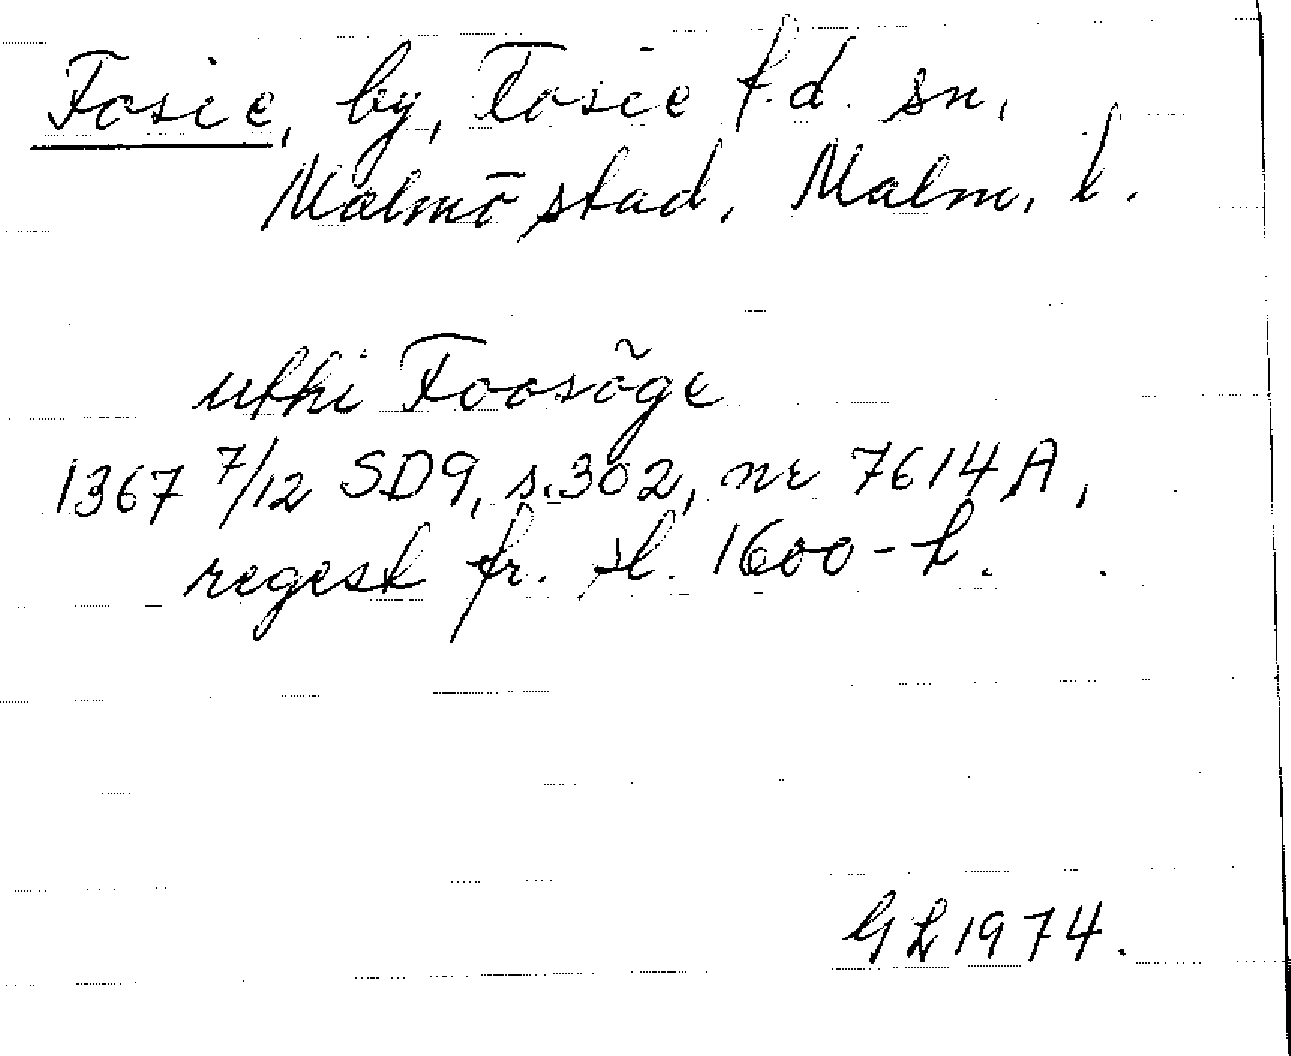 Fosie, by, Fosie f.d. sn,
Malmö stad, Malm. l.
uthi Foosõge
1367 7/12 SD9, s.302, nr 7614A,
regest fr. sl. 1600-t.
GL 1974.